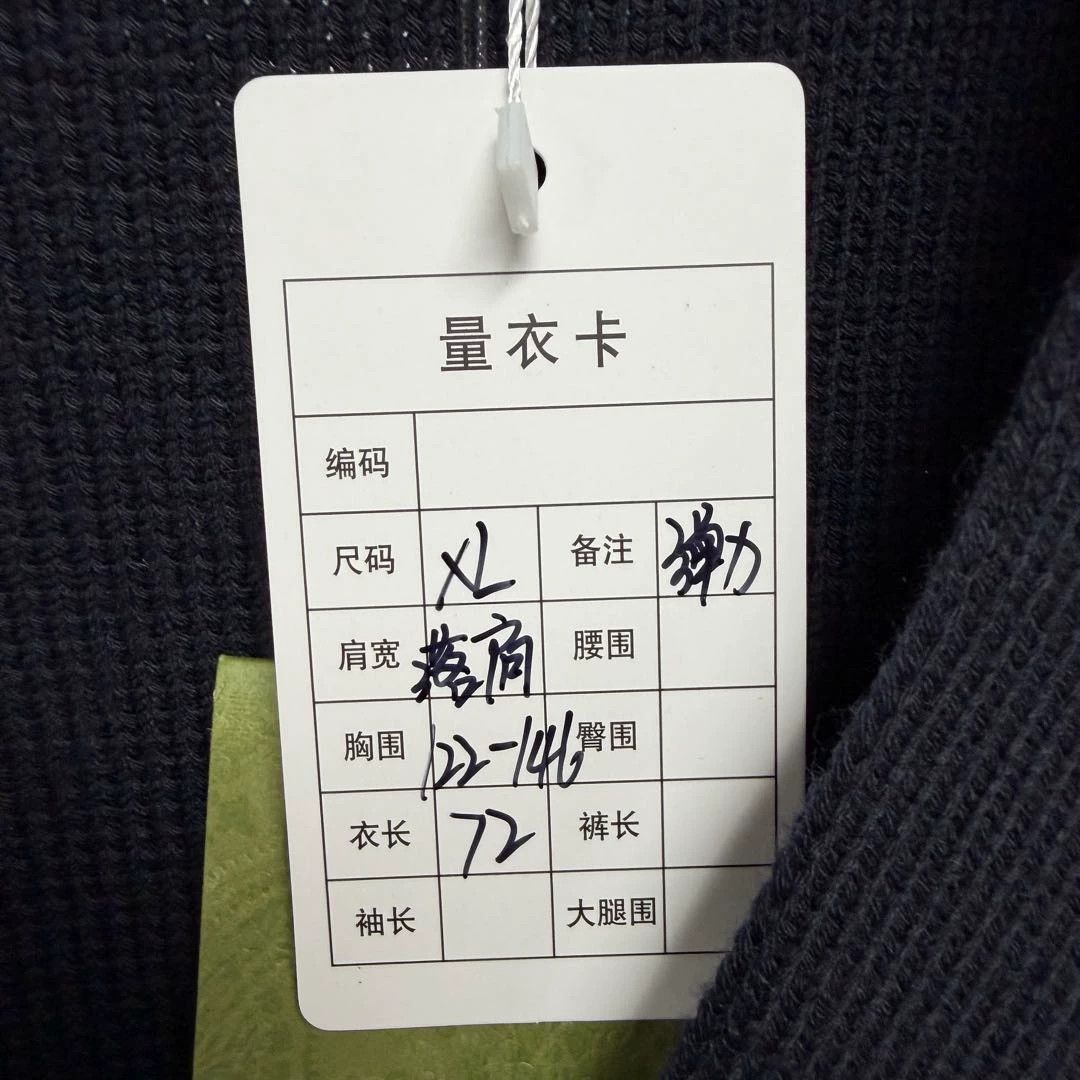 量衣卡
编码
尺码 XL 备注 弹力
肩宽 落肩 腰围
胸围 122-146 臀围
衣长 72 裤长
袖长 大腿围